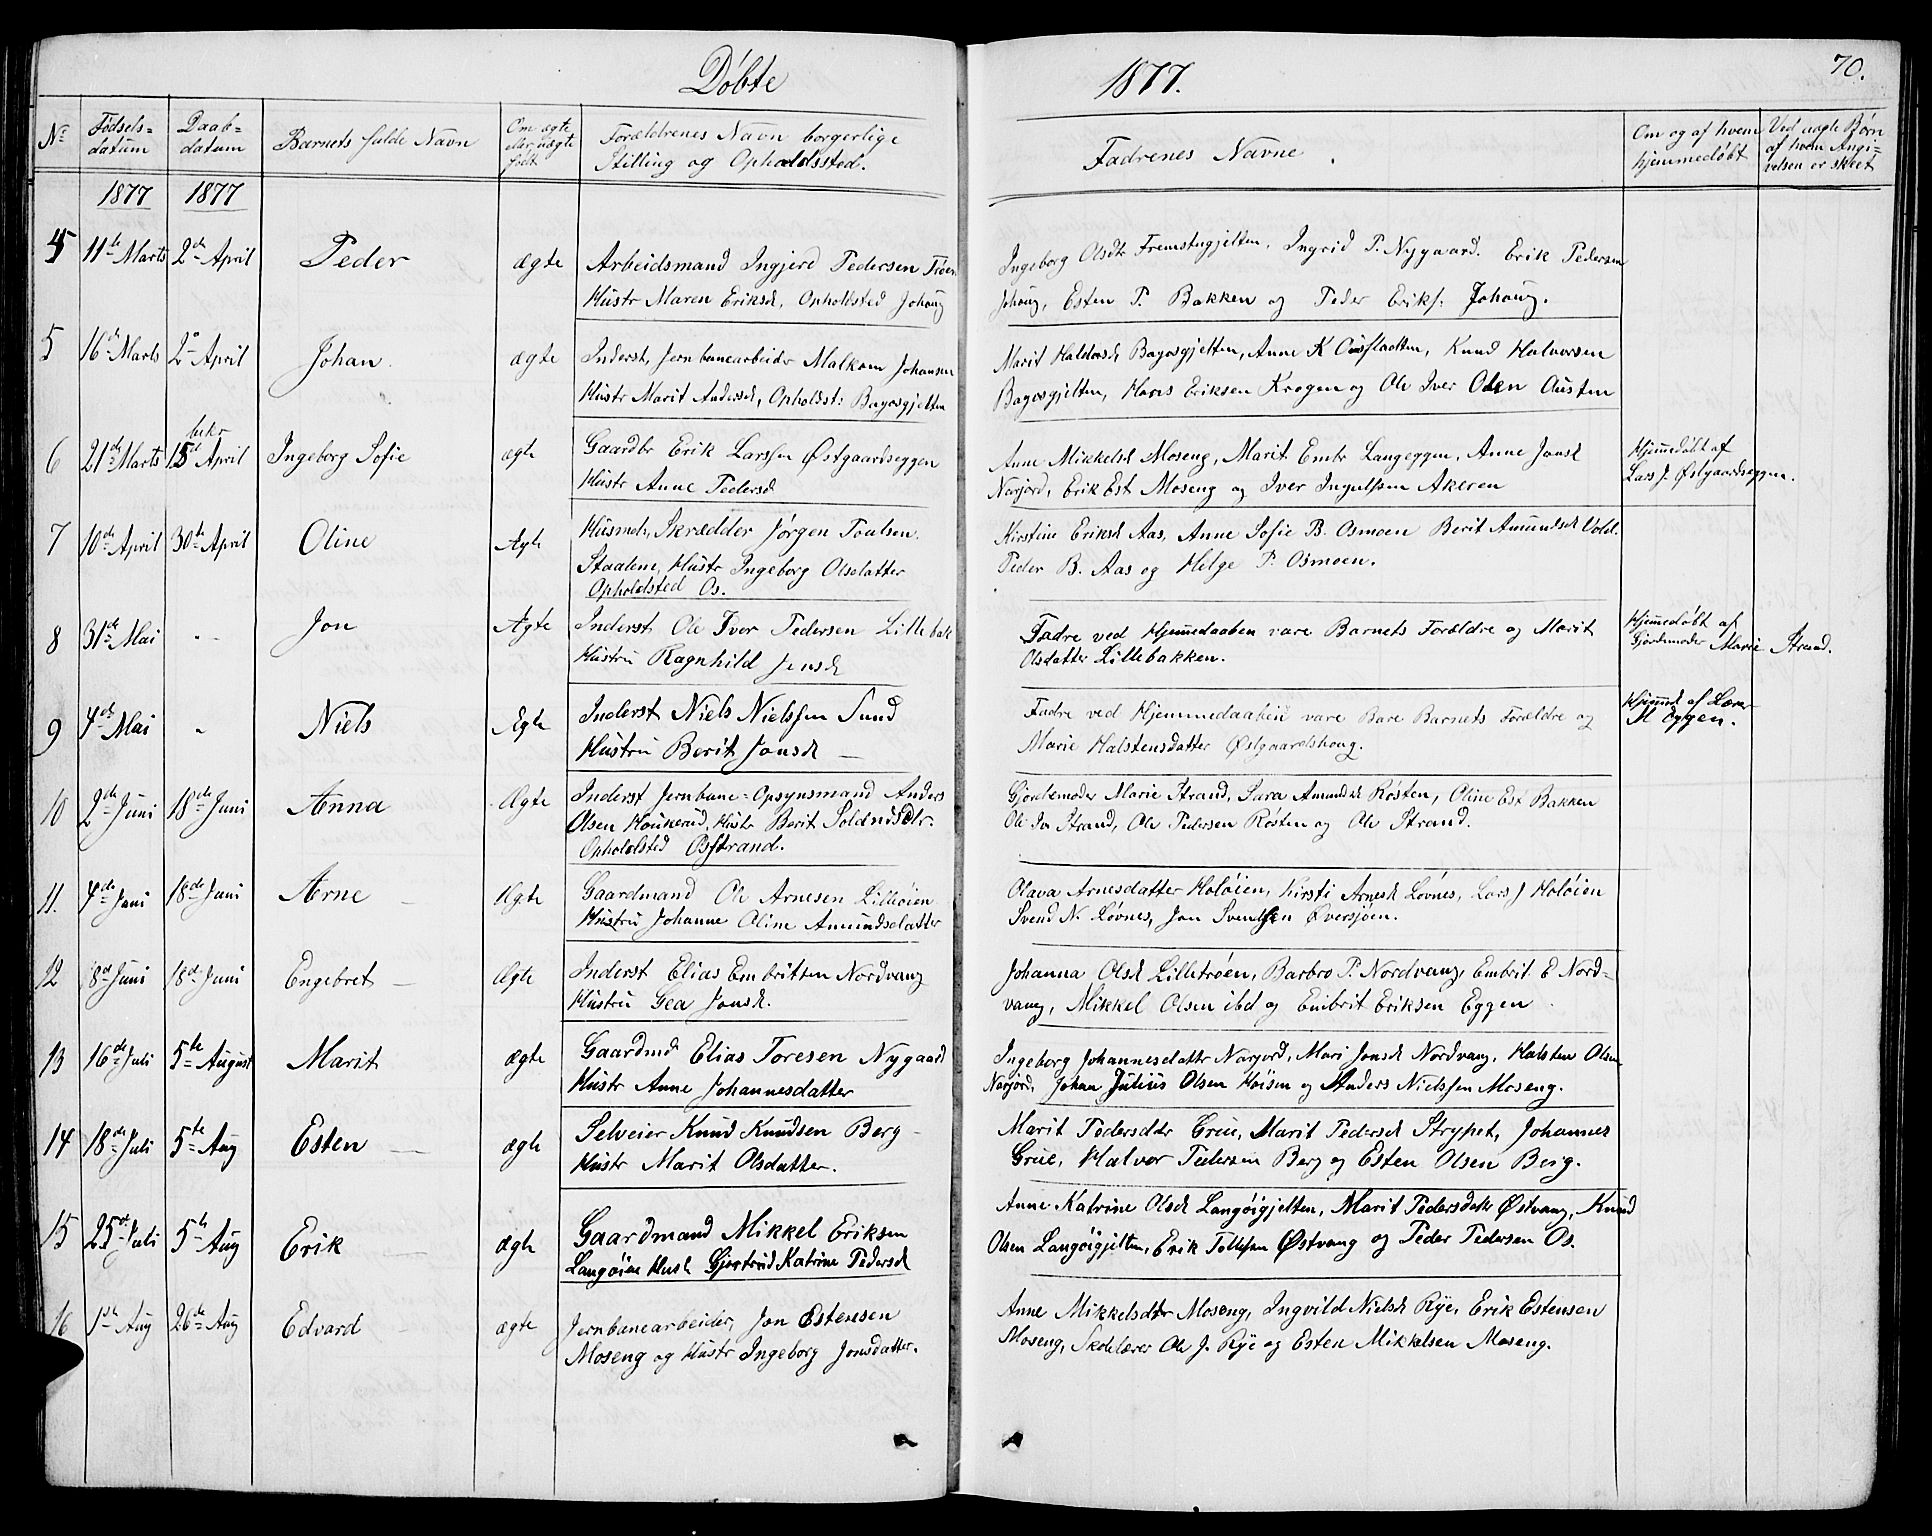 Døbte 1877. 70.
No Fødsels= datum Daab= datum Barnets fulde Navn Om ægte eller uægte født Forældrenes Navn borgerlige Stilling og Opholdssted. Fadrenes Navne. Om og af hvem hjemmedøbt Ved uægte Børn af hvem Angi= velsen er skeet
1877 1877
11te Marts 2den April Peder ægte Arbeidsmand Ingjerd Pedersen
Hustr Maren Eriksd, Opholdsted Johaug
Ingeborg Olsdtr Fremstugjelten, Ingrid P. Nygaard. Erik Pedersen
Johaug, Esten P. Bakken og Peder Eriks. Johaug.
5 16de Marts 2den April Johan. ægte Inderst, Jernbanearbeidr Malkom Johansen
Hustr Marit Andersd, Opholdst: Bagosgjelten
Marit Halvorsd Bagosgjelten, Anne K. Knud Halvorsen
Bagosgjelten, Hans Eriksen Krogen og Ole Iver Olsen Austen
6 21de Marts bekr 15d April Ingeborg Sofie ægte Gaardbr Erik Larssen Østgaardseggen
Hustr Anne Pedersd
Anne Mikkelsd Moseng, Marit Embr Langeggen, Anne Jonsd
Narjord, Erik Est Moseng og Iver Ingulfsen Akeren
Hjemmedøbt af
Lars J. Østgaardseggen.
7 10de April 30te April Oline Ægte Husmd, Skrædder Jørgen Poulsen.
Staalene, Hustr Ingeborg Olsdatter
Opholdsted Os.
Kirstine Eriksd Aas, Anne Sofie B. Osmoen Berit Amundsd Vold.
Peder B. Aas og Helge P. Osmoen.
8 31de Mai " Jon Ægte Inderst Ole Iver Pedersen Lillebak
Hustru Ragnhild Jensd
Fadre ved Hjemmedaaben vare Barnets Forældre og Marit
Olsdatter Lillebakken.
Hjemmedøbt af
Gjordemoder Marie Strand.
9 4de Mai " Niels Ægte Inderst Niels Nielssen Sund
Hustru Berit Jonsd —
Fadre ved Hjemmedaaben vare Bare Barnets Forældre og
Marie Halstensdatter Østgaardshaug.
Hjemmd af Lærer
H Eggen.
10 2den Juni 18de Juni Anna Ægte Inderst Jernbane-Opsynsmand Anders
Olsen Houkerud, Hustr Berit
Opholdsted Osstrand.
Gjordemoder Marie Strand, Sara Amundsd Røsten, Oline Est Bakken
Ole Iver Strand, Ole Pedersen Røsten og Ole Strand.
11. 4de Juni 18de Juni Arne — Ægte Gaardmand Ole Arnesen Lilleøien
Hustru Johanne Oline Amundsdatter
Olava Arnesdatter Holøien, Kirsti Arnesd Løvnes, Lars J Holøien
Svend N. Løvnes, Jon Svendsen Øversjøen.
12 8de Juni 18de Juni Engebret — Ægte Inderst Elias Embritsen Nordvang
Hustru Gea Jonsd.
Johanna Olsd Lilletrøen, Barbro P. Nordvang, Embrit E Nord-
vang, Mikkel Olsen ibd og Embrit Eriksen Eggen.
13 16de Juli 5te August Marit ægte Gaardmd Elias Toresen Nygaard
Hustr Anne Johannesdatter
Ingeborg Johannesdattr Narjord, Mari Jonsd Nordvang, Halsten Olsen
Narjord, Johan Julius Olsen Høisen og Anders Nielssen Moseng.
14 18de Juli 5te Aug Esten — ægte Selveier Knud Knudsen Berg —
Hustr Marit Olsdatter.
Marit Pedersdtr Grue, Marit Pedersd Strypet, Johannes
Grue, Halvor Pedersen Berg og Esten Olsen Berg.
15 25de Juli 5te Aug Erik — ægte Gaardmand Mikkel Eriksen
Langøien Hust Gjertrud Katrine Pedersd
Anne Katrine Olsd Langøigjelten, Marit Pedersdatr Østvang, Knud
Olsen Langøigjelten, Erik Tollefsen Østvang og Peder Pedersen Os.
16 1ste Aug 26de Aug Edvard — ægte Jernbanearbeider, Jon Estensen
Moseng og Hustr Ingeborg Jonsdatter.
Anne Mikkelsdtr Moseng, Ingvild Nielsd Rye, Erik Estensen
Moseng, Skolelærer Ole J. Rye og Esten Mikkelsen Moseng.